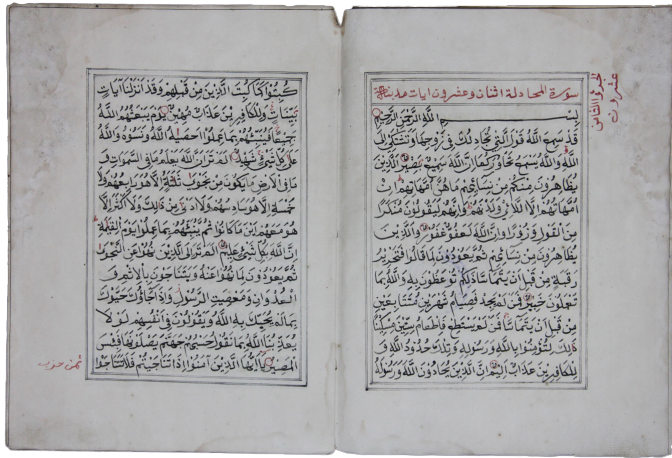 سورة المجادلة اثنان وعشرون ايات مدينة
جزؤ الثامن
عشرون
بسم الله الرحمن الرحيم
قد سمع الله قول التي تجادلك في زوجها وتشتكي الى
الله والله يسمع تحاوركما ان الله سميع بصير الذين
يظاهرون منكم من نسائهم ما هن امهاتهم ان
امهاتهم الا اللائي ولدنهم وانهم ليقولون منكرا
من القول وزورا وان الله لعفو غفور والذين
يظاهرون من نسائهم ثم يعودون لما قالوا فتحرير
رقبة من قبل ان يتماسا ذلكم توعظون به والله بما
تعملون خبير فمن لم يجد فصيام شهرين متتابعين
من قبل ان يتماسا فمن لم يستطع فاطعام ستين مسكينا
ذلك لتؤمنوا بالله ورسوله وتلك حدود الله و
للكافرين عذاب اليم ان الذين يحادون الله ورسوله
كبتوا كما كبت الذين من قبلهم وقد انزلنا آيات
بينات وللكافرين عذاب مهين يوم يبعثهم الله
جميعا فينبئهم بما عملوا احصيه الله ونسوه والله
على كل شيء شهيد الم تر ان الله يعلم ما في السموات و
ما في الارض ما يكون من نجوى ثلثة الا هو رابعهم ولا
خمسة الا هو سادسهم ولا ادنى من ذالك ولا اكثر الا
هو معهم اين ما كانوا ثم ينبئهم بما عملوا يوم القيمة
ان الله بكل شيء عليم الم تر الى الذين نهوا عن النجوى
ثم يعودون لما نهوا عنه ويتناجون بالاثم و
العدوان ومعصيت الرسول واذا جاؤك حيوك
بما لم يحيك به الله ويقولون في انفسهم لو لا
يعذبنا الله بما نقول حسبهم جهنم يصلونها فبئس
المصير يا ايها الذين آمنوا اذا تناجيتم فلا تتناجوا
ثمن حزب